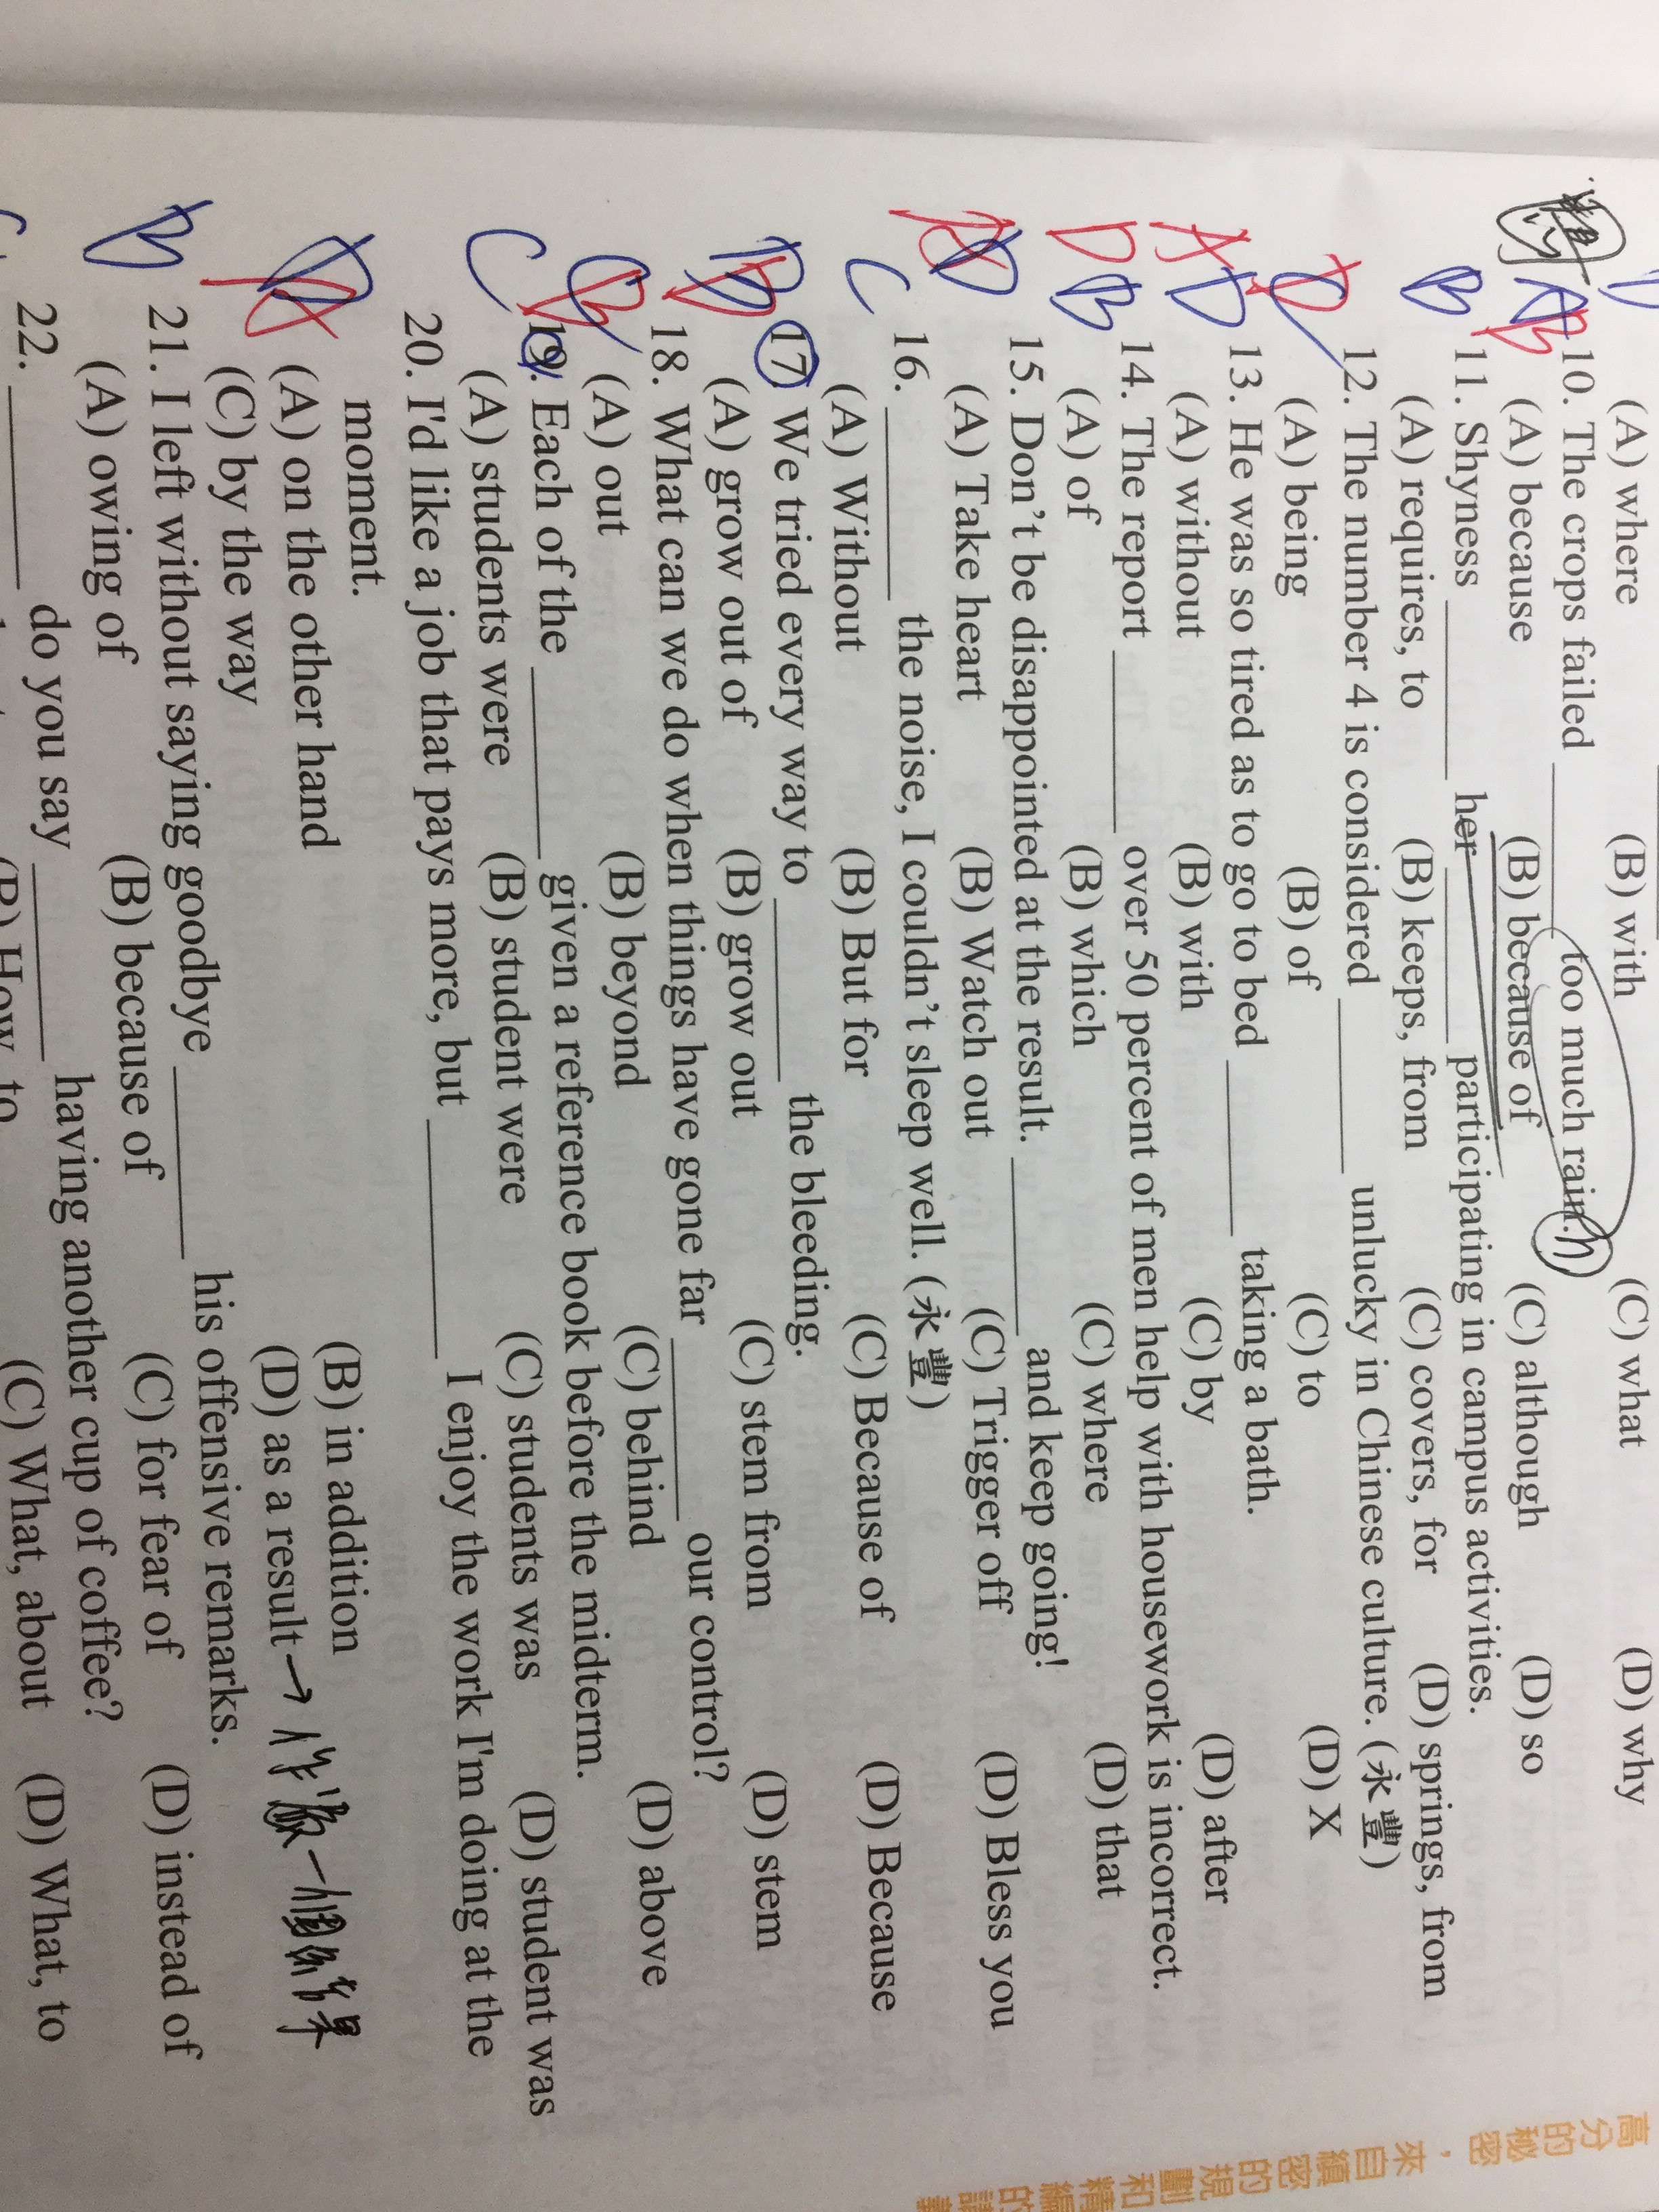 (A) where (B) with (C) what (D) why
B 10. The crops failed ______ too much rain.
(A) because (B) because of (C) although (D) so
B 11. Shyness ______ her ______ participating in campus activities.
(A) requires, to (B) keeps, from (C) covers, for (D) springs, from
D 12. The number 4 is considered ______ unlucky in Chinese culture. (永豐)
(A) being (B) of (C) to (D) X
A D 13. He was so tired as to go to bed ______ taking a bath.
(A) without (B) with (C) by (D) after
D B 14. The report ______ over 50 percent of men help with housework is incorrect.
(A) of (B) which (C) where (D) that
A D 15. Don't be disappointed at the result. ______ and keep going!
(A) Take heart (B) Watch out (C) Trigger off (D) Bless you
C 16. ______ the noise, I couldn't sleep well. (永豐)
(A) Without (B) But for (C) Because of (D) Because
D B 17. We tried every way to ______ the bleeding.
(A) grow out of (B) grow out (C) stem from (D) stem
C B 18. What can we do when things have gone far ______ our control?
(A) out (B) beyond (C) behind (D) above
C 19. Each of the ______ given a reference book before the midterm.
(A) students were (B) student were (C) students was (D) student was
A 20. I'd like a job that pays more, but ______ I enjoy the work I'm doing at the
moment.
(A) on the other hand (B) in addition
(C) by the way (D) as a result →
B 21. I left without saying goodbye ______ his offensive remarks.
(A) owing of (B) because of (C) for fear of (D) instead of
22. ______ do you say ______ having another cup of coffee?
(B) How, to (C) What, about (D) What, to
高分的秘密，來自縝密的規劃和精編的講義